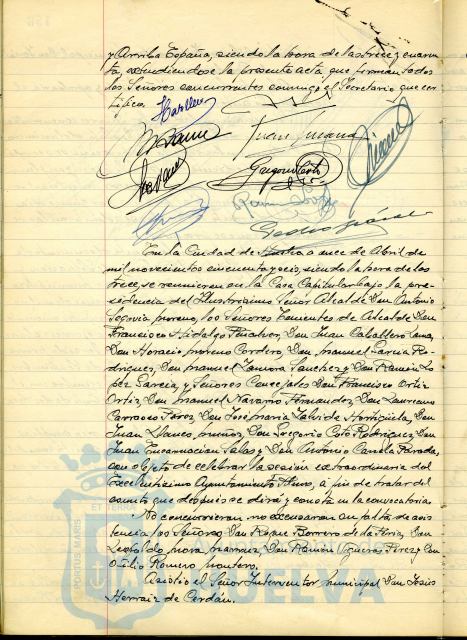 y Arriba España, siendo la hora de las trece y cuaren-
ta, extendiendose la presente acta, que firman todos
los Señores concurrentes conmigo el Secretario que cer-
tifico.
En la Ciudad de Huelva a once de Abril de
mil novecientos cincuenta y seis, siendo la hora de las
trece, se reunieron en la Casa Capitular bajo la pre-
sidencia del Ilustrisimo Señor Alcalde Don Antonio
Segovia moreno, los Señores Tenientes de Alcalde Don
Francisco Hidalgo Peñalver, Don Juan Caballero Lama,
Don Horacio moreno Cordero, Don manuel Garcia Ro-
driguez, Don manuel Zamora Sanchez y Don Ramón Lo-
pez Garcia y Señores Concejales Don Francisco Ortiz
Ortiz, Don manuel Navarro Fernandez, Don Laureano
Carrasco Perez, Don José maria Zalvide Hortigüela, Don
Juan Llanes muñoz, Don Gregorio Coto Rodriguez, Don
Juan Encarnacion Salas y Don Antonio Canela Parada,
con objeto de celebrar la sesion extraordinaria del
Excelentisimo Ayuntamiento Pleno, a fin de tratar del
asunto que despues se dirá y consta en la convocatoria.
No concurrieron, no excusaron su falta de asis
tencia los Señores Don Roque Borrero de la Feria, Don
Leopoldo mora Don Ramón Figueras Perez y Don
Otilio Romero montero.
Asistio el Señor Interventor municipal Don Jesús
Herraiz de Cerdán.
PORTUS MARIS
ET TERRA
HUELVA